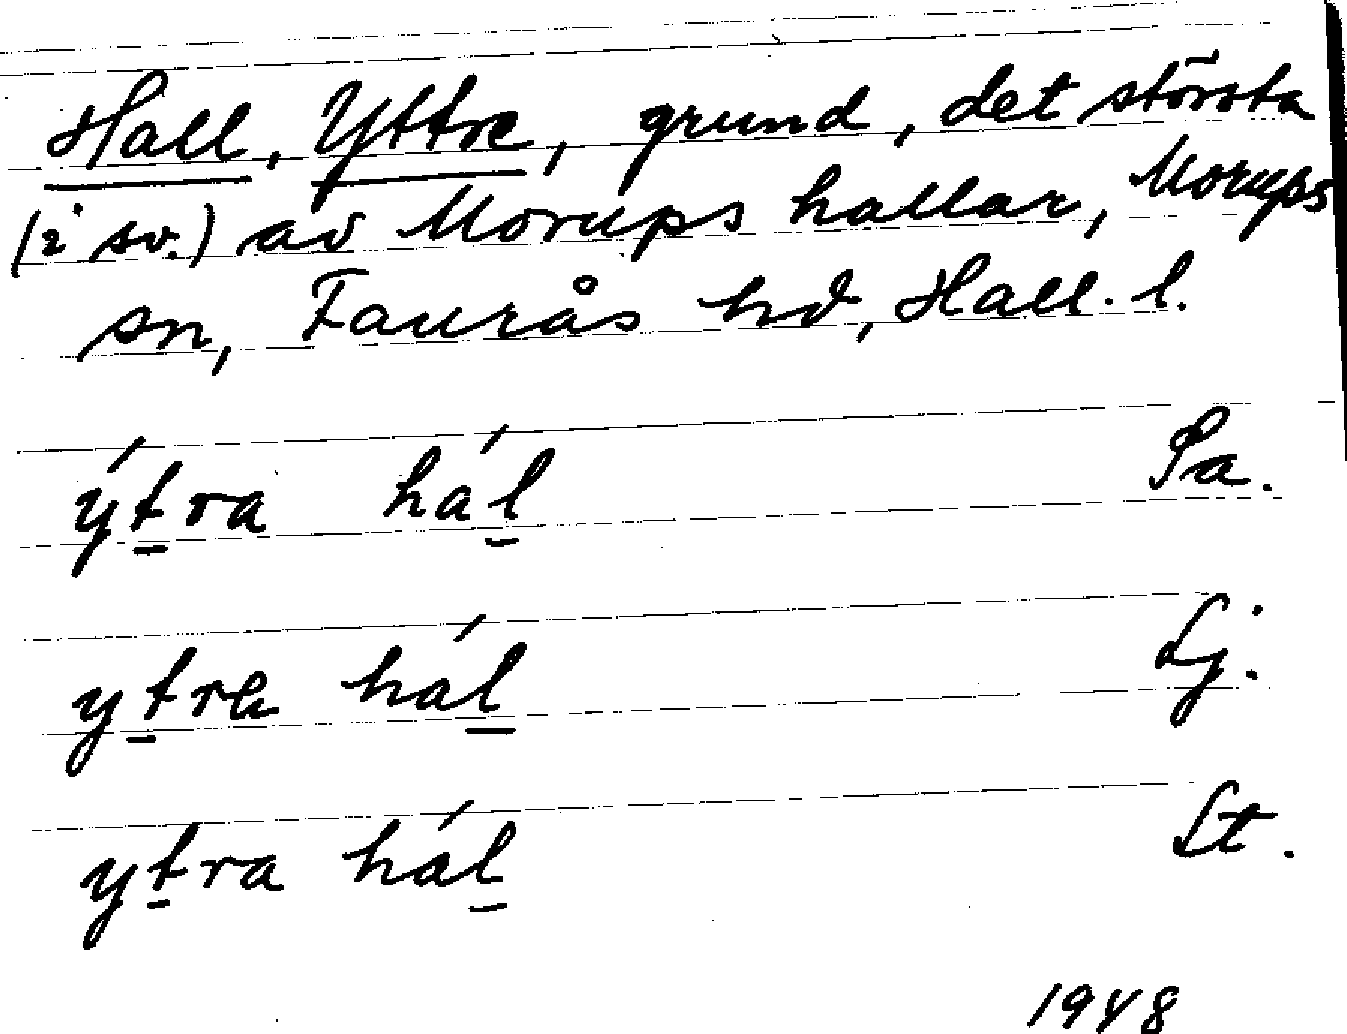 Hall, Yttre, grund, det största
(i sv.) av Morups hallar, Morups
sn, Faurås hd, Hall. l.
ýtra hál Sa.
ytra hál Lj.
ytra hál St.
1948